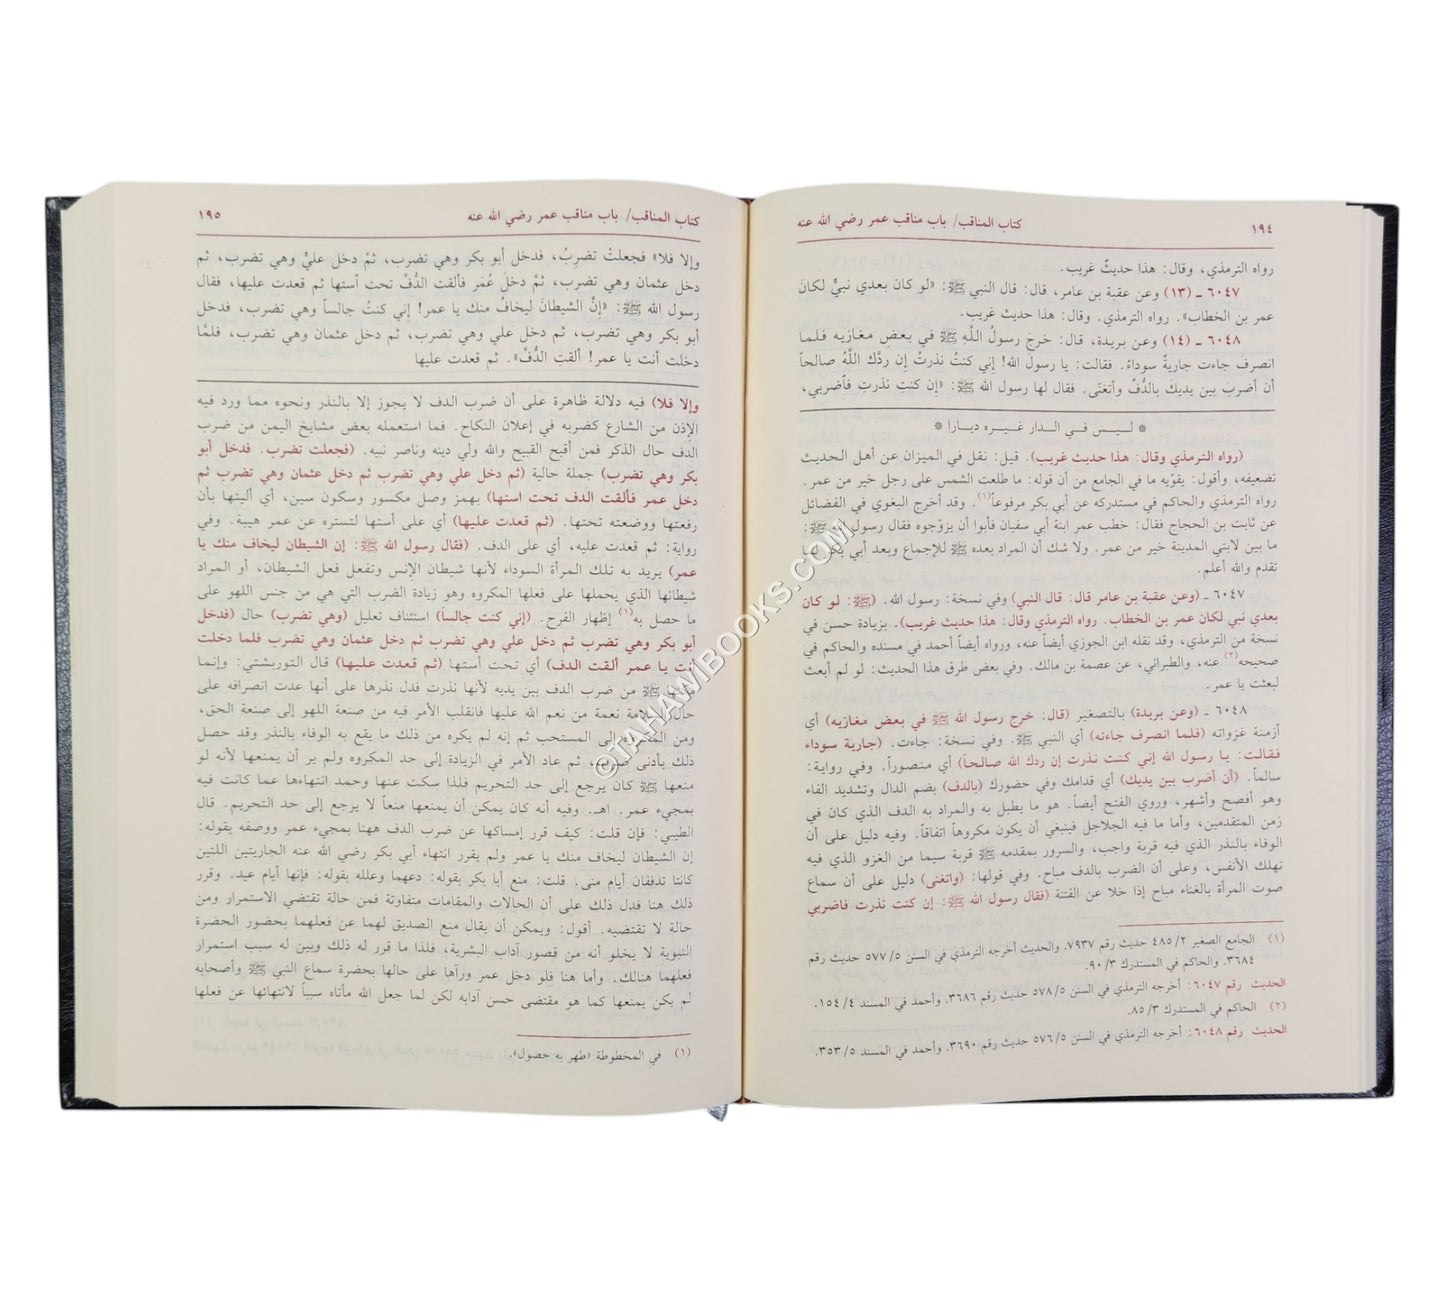 ١٩٤ كتاب المناقب/ باب مناقب عمر رضي الله عنه
رواه الترمذي، وقال: هذا حديثٌ غريب.
٦٠٤٧ ـ (١٣) وعن عقبة بن عامر، قال: قال النبي ﷺ: «لو كان بعدي نبيٌّ لكانَ
عمر بن الخطاب». رواه الترمذي. وقال: هذا حديث غريب.
٦٠٤٨ ـ (١٤) وعن بريدة، قال: خرجَ رسولُ اللَّهِ ﷺ في بعضِ مغازيه فلما
انصرفَ جاءت جاريةٌ سوداءُ. فقالت: يا رسول الله! إني كنتُ نذرتُ إن ردَّك اللَّهُ صالحاً
أن أضربَ بين يديك بالدُّفِّ وأتغنّى. فقال لها رسول الله ﷺ: «إن كنتِ نذرتِ فاضربي،
* ليس في الدار غيره ديارا *
(رواه الترمذي وقال: هذا حديث غريب). قيل: نقل في الميزان عن أهل الحديث
تضعيفه، وأقول: يقوّيه ما في الجامع من أن قوله: ما طلعت الشمس على رجل خير من عمر.
رواه الترمذي والحاكم في مستدركه عن أبي بكر مرفوعاً(١). وقد أخرج البغوي في الفضائل
عن ثابت بن الحجاج فقال: خطب عمر ابنة أبي سفيان فأبوا أن يزوّجوه فقال رسول الله ﷺ:
ما بين لابتي المدينة خير من عمر. ولا شك أن المراد بعده ﷺ للإجماع وبعد أبي بكر لما
تقدم والله أعلم.
٦٠٤٧ ـ (وعن عقبة بن عامر قال: قال النبي) وفي نسخة: رسول الله. (ﷺ: لو كان
بعدي نبي لكان عمر بن الخطاب. رواه الترمذي وقال: هذا حديث غريب). بزيادة حسن في
نسخة من الترمذي، وقد نقله ابن الجوزي أيضاً عنه، ورواه أيضاً أحمد في مسنده والحاكم في
صحيحه(٢) عنه، والطبراني، عن عصمة بن مالك. وفي بعض طرق هذا الحديث: لو لم أبعث
لبعثت يا عمر.
٦٠٤٨ ـ (وعن بريدة) بالتصغير (قال: خرج رسول الله ﷺ في بعض مغازيه) أي
أزمنة غزواته (فلما انصرف جاءته) أي النبي ﷺ. وفي نسخة: جاءت. (جارية سوداء
فقالت: يا رسول الله إني كنت نذرت إن ردك الله صالحاً) أي منصوراً. وفي رواية:
سالماً. (أن أضرب بين يديك) أي قدامك وفي حضورك (بالدف) بضم الدال وتشديد الفاء
وهو أفصح وأشهر، وروي الفتح أيضاً. هو ما يطبل به والمراد به الدف الذي كان في
زمن المتقدمين، وأما ما فيه الجلاجل فينبغي أن يكون مكروهاً اتفاقاً. وفيه دليل على أن
الوفاء بالنذر الذي فيه قربة واجب، والسرور بمقدمه ﷺ قربة سيما من الغزو الذي فيه
تهلك الأنفس، وعلى أن الضرب بالدف مباح. وفي قولها: (وأتغنى) دليل على أن سماع
صوت المرأة بالغناء مباح إذا خلا عن الفتنة (فقال رسول الله ﷺ: إن كنت نذرت فاضربي
(١) الجامع الصغير ٢/ ٤٨٥ حديث رقم ٧٩٣٧. والحديث أخرجه الترمذي في السنن ٥/ ٥٧٧ حديث رقم
٣٦٨٤. والحاكم في المستدرك ٣/ ٩٠.
الحديث رقم ٦٠٤٧: أخرجه الترمذي في السنن ٥/ ٥٧٨ حديث رقم ٣٦٨٦. وأحمد في المسند ٤/ ١٥٤.
(٢) الحاكم في المستدرك ٣/ ٨٥.
الحديث رقم ٦٠٤٨: أخرجه الترمذي في السنن ٥/ ٥٧٦ حديث رقم ٣٦٩٠. وأحمد في المسند ٥/ ٣٥٣.
كتاب المناقب/ باب مناقب عمر رضي الله عنه ١٩٥
وإلا فلا» فجعلتْ تضرِبُ، فدخل أبو بكر وهي تضرب، ثمَّ دخل عليٌّ وهي تضرب، ثم
دخل عثمان وهي تضرب، ثمَّ دخلَ عُمَر فألقت الدُّفَّ تحت أستها ثم قعدت عليها، فقال
رسول الله ﷺ: «إنَّ الشيطانَ ليخافُ منك يا عمر! إني كنتُ جالساً وهي تضرب، فدخل
أبو بكر وهي تضرب، ثم دخل علي وهي تضرب، ثم دخل عثمان وهي تضرب، فلمَّا
دخلت أنت يا عمر! ألقتِ الدُّفَّ». ثم قعدت عليها
وإلا فلا) فيه دلالة ظاهرة على أن ضرب الدف لا يجوز إلا بالنذر ونحوه مما ورد فيه
الإذن من الشارع كضربه في إعلان النكاح. فما استعمله بعض مشايخ اليمن من ضرب
الدف حال الذكر فمن أقبح القبيح والله ولي دينه وناصر نبيه. (فجعلت تضرب. فدخل أبو
بكر وهي تضرب) جملة حالية (ثم دخل علي وهي تضرب ثم دخل عثمان وهي تضرب ثم
دخل عمر فألقت الدف تحت استها) بهمز وصل مكسور وسكون سين، أي أليتها بأن
رفعتها ووضعته تحتها. (ثم قعدت عليها) أي على أستها لتستره عن عمر هيبة. وفي
رواية: ثم قعدت عليه، أي على الدف. (فقال رسول الله ﷺ: إن الشيطان ليخاف منك يا
عمر) يريد به تلك المرأة السوداء لأنها شيطان الإنس وتفعل فعل الشيطان، أو المراد
شيطانها الذي يحملها على فعلها المكروه وهو زيادة الضرب التي هي من جنس اللهو على
ما حصل به(١) إظهار الفرح. (إني كنت جالساً) استئناف تعليل (وهي تضرب) حال (فدخل
أبو بكر وهي تضرب ثم دخل علي وهي تضرب ثم دخل عثمان وهي تضرب فلما دخلت
أنت يا عمر ألقت الدف) أي تحت أستها (ثم قعدت عليها) قال التوربشتي: وإنما
ﷺ من ضرب الدف بين يديه لأنها نذرت فدل نذرها على أنها عدت انصرافه على
حال السلامة نعمة من نعم الله عليها فانقلب الأمر فيه من صنعة اللهو إلى صنعة الحق،
ومن المكروه إلى المستحب ثم إنه لم يكره من ذلك ما يقع به الوفاء بالنذر وقد حصل
ذلك بأدنى ضرب، ثم عاد الأمر في الزيادة إلى حد المكروه ولم ير أن يمنعها لأنه لو
منعها ﷺ كان يرجع إلى حد التحريم فلذا سكت عنها وحمد انتهاءها عما كانت فيه
بمجيء عمر. اهـ. وفيه أنه كان يمكن أن يمنعها منعاً لا يرجع إلى حد التحريم. قال
الطيبي: فإن قلت: كيف قرر إمساكها عن ضرب الدف ههنا بمجيء عمر ووصفه بقوله:
إن الشيطان ليخاف منك يا عمر ولم يقرر انتهاء أبي بكر رضي الله عنه الجاريتين اللتين
كانتا تدففان أيام منى. قلت: منع أبا بكر بقوله: دعهما وعلله بقوله: فإنها أيام عيد. وقرر
ذلك هنا فدل ذلك على أن الحالات والمقامات متفاوتة فمن حالة تقتضي الاستمرار ومن
حالة لا تقتضيه. أقول: ويمكن أن يقال منع الصديق لهما عن فعلهما بحضور الحضرة
النبوية لا يخلو أنه من قصور آداب البشرية، فلذا ما قرر له ذلك وبين له سبب استمرار
فعلهما هنالك. وأما هنا فلو دخل عمر ورآها على حالها بحضرة سماع النبي ﷺ وأصحابه
لم يكن يمنعها كما هو مقتضى حسن آدابه لكن لما جعل الله مأتاه سبباً لانتهائها عن فعلها
(١) في المخطوطة «طهر به حصول».
©TAHAWIBOOKS.COM